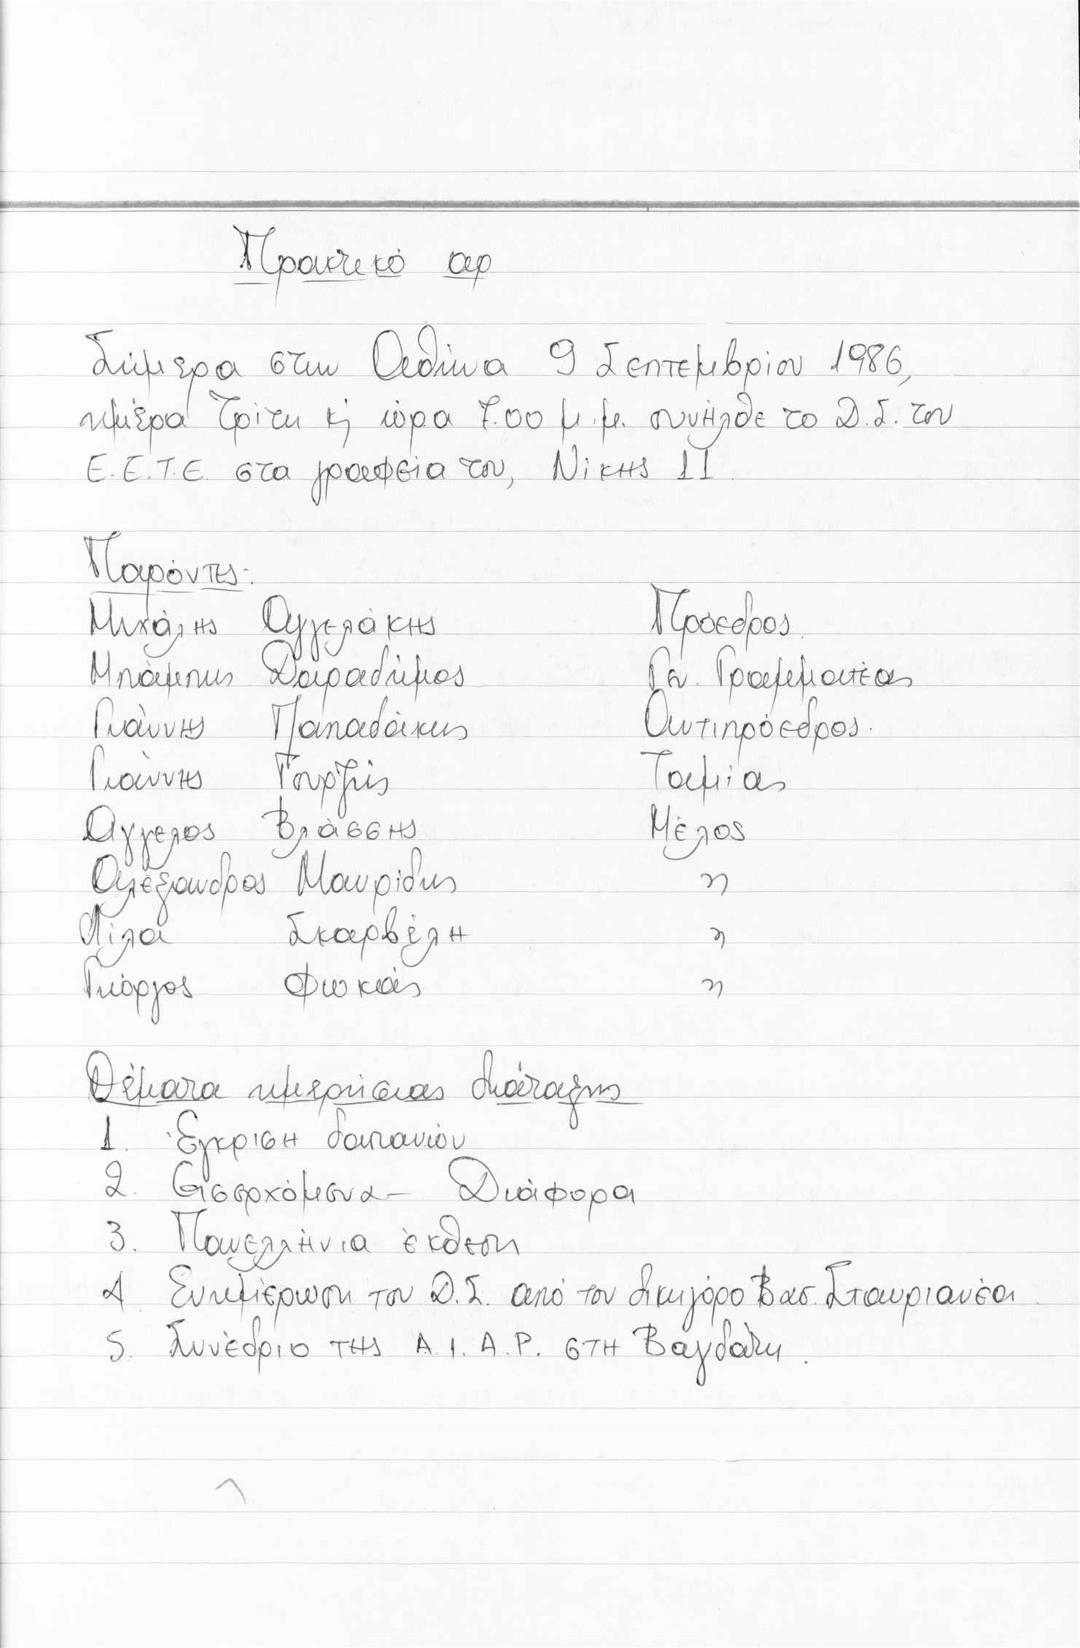 Πρακτικό αρ
Σήμερα στην Αθήνα 9 Σεπτεμβρίου 1986,
ημέρα Τρίτη κ' ώρα 7.00 μ.μ. συνήλθε το Δ.Σ. του
Ε.Ε.Τ.Ε. στα γραφεία του, Νίκης 11
Παρόντες:
Μιχάλης Αγγελάκης Πρόεδρος
Μπάμπης Δαραδήμος Γεν. Γραμματέας
Γιάννης Παπαδάκης Αντιπρόεδρος.
Γιάννης Γουρζής Ταμίας
Αγγελος Βλάσσης Μέλος
Αλέξανδρος Μαυρίδης "
Λίλα Σκαρβέλη "
Γιώργος Φωκάς "
Θέματα ημερήσιας διάταξης
1. Έγκριση δαπανών
2. Εισερχόμενα - Διάφορα
3. Πανελλήνια έκθεση
4 Ενημέρωση του Δ.Σ. από τον δικηγόρο Βασ. Σταυριανέα
5. Συνέδριο της A.I.A.P. στη Βαγδάτη.